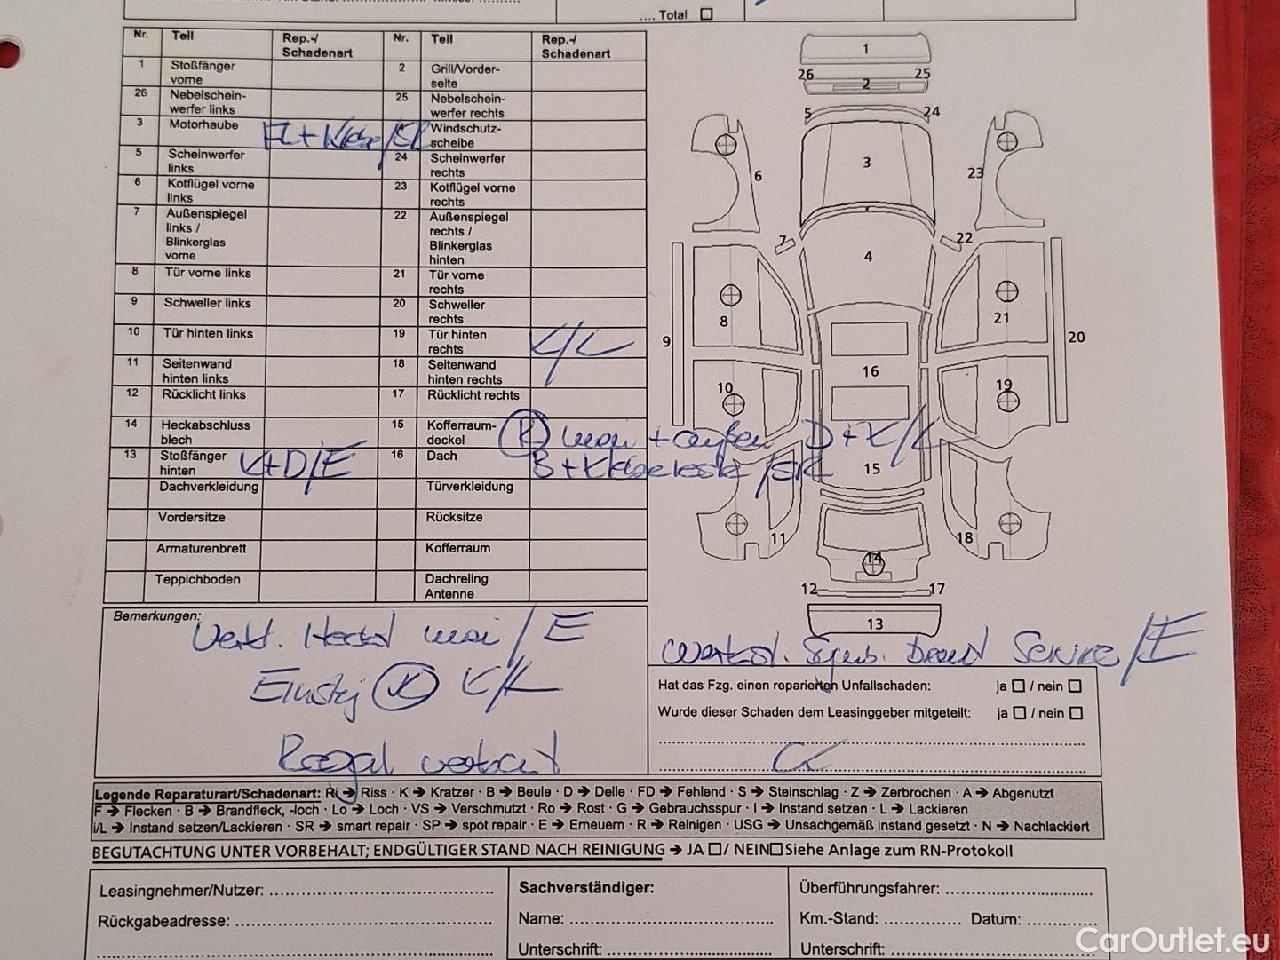 .... Total
Nr. Teil Rep.-/ Schadenart Nr. Teil Rep.-/ Schadenart
1 Stoßfänger vorne 2 Grill/Vorder-seite
26 Nebelschein-werfer links 25 Nebelschein-werfer rechts
3 Motorhaube Windschutz-scheibe
5 Scheinwerfer links 24 Scheinwerfer rechts
6 Kotflügel vorne links 23 Kotflügel vorne rechts
7 Außenspiegel links / Blinkerglas vorne 22 Außenspiegel rechts / Blinkerglas hinten
8 Tür vorne links 21 Tür vorne rechts
9 Schweller links 20 Schweller rechts
10 Tür hinten links 19 Tür hinten rechts K/L
11 Seitenwand hinten links 18 Seitenwand hinten rechts
12 Rücklicht links 17 Rücklicht rechts
14 Heckabschluss blech 15 Kofferraum-deckel K + außen D+K/L
13 Stoßfänger hinten K+D/E 16 Dach
Dachverkleidung Türverkleidung
Vordersitze Rücksitze
Armaturenbrett Kofferraum
Teppichboden Dachreling Antenne
1
26 25
2
5 24
3
6 23
7 22
4
8 21
9 20
16
10 19
15
11 18
14
12 17
13
Bemerkungen:
/ E
K K/L
Service/E
Hat das Fzg. einen reparierten Unfallschaden: ja / nein
Wurde dieser Schaden dem Leasinggeber mitgeteilt: ja / nein
Legende Reparaturart/Schadenart: Ri ➔ Riss · K ➔ Kratzer · B ➔ Beule · D ➔ Delle · FD ➔ Fehlend · S ➔ Steinschlag · Z ➔ Zerbrochen · A ➔ Abgenutzt
F ➔ Flecken · B ➔ Brandfleck, -loch · Lo ➔ Loch · VS ➔ Verschmutzt · Ro ➔ Rost · G ➔ Gebrauchsspur · I ➔ Instand setzen · L ➔ Lackieren
I/L ➔ Instand setzen/Lackieren · SR ➔ smart repair · SP ➔ spot repair · E ➔ Erneuern · R ➔ Reinigen · USG ➔ Unsachgemäß instand gesetzt · N ➔ Nachlackiert
BEGUTACHTUNG UNTER VORBEHALT; ENDGÜLTIGER STAND NACH REINIGUNG ➔ JA / NEIN Siehe Anlage zum RN-Protokoll
Leasingnehmer/Nutzer:
Rückgabeadresse:
Sachverständiger:
Name:
Unterschrift:
Überführungsfahrer:
Km.-Stand: Datum:
Unterschrift:
CarOutlet.eu